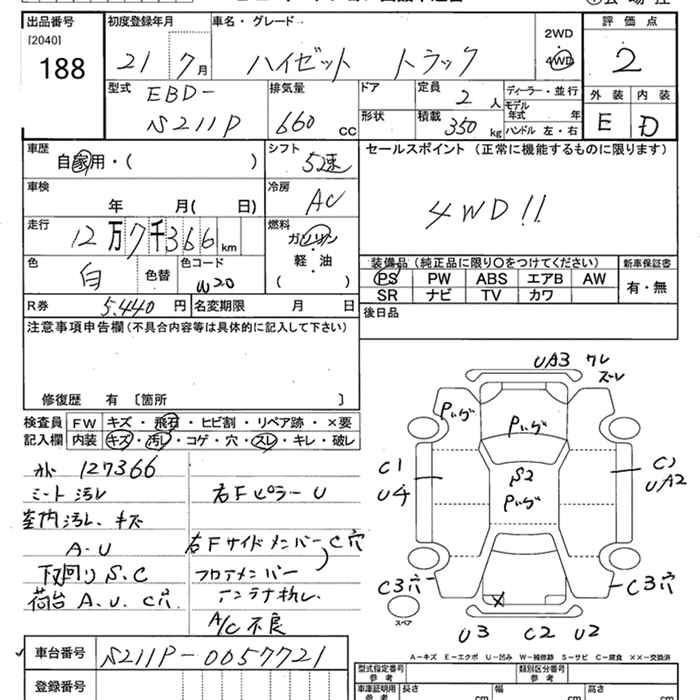 出品番号
[2040]
188
初度登録年月
21 7月
車名・グレード
ハイゼット トラック
2WD
4WD
評価点
2
型式
EBD-
S211P
排気量
660 cc
ドア
形状
定員
2人
積載
350 kg
ディーラー・並行
モデル
年式 年
ハンドル 左・右
外装
E
内装
D
車歴
自家用・( )
シフト
5速
セールスポイント(正常に機能するものに限ります)
4WD!!
車検
年 月( 日)
冷房
AC
走行
12万7千366 km
燃料
ガソリン
軽・油
( )
色
白
色替
色コード
W20
装備品(純正品に限り○をつけてください)
PS PW ABS エアB AW
SR ナビ TV カワ
新車保証書
有・無
R券
5.440円
名変期限 月 日
後日品
注意事項申告欄(不具合内容等は具体的に記入して下さい)
修復歴 有〔箇所 〕
検査員
記入欄
FW キズ・飛石・ヒビ割・リペア跡・×要
内装 キズ・汚レ・コゲ・穴・スレ・キレ・破レ
127366
シート汚レ
室内汚レ、キズ
A・U
下回りS.C
荷台 A.U.C穴
右Fピラー U
右FサイドメンバーC穴
フロアメンバー
アンテナ折レ.
A/C不良
UA3 ワレ
ズレ
Pいグ
Pいグ
S2
Pいグ
C1
U4
C1
UA2
C3穴
C3穴
スペア
U3 C2 U2
A-キズ E-エクボ U-凹み W-補修跡 S-サビ C-腐食 ××-交換済
車台番号
S211P-0057721
登録番号
型式指定番号
参考
類別区分番号
参考
車庫証明用
参考
長さ cm
幅 cm
高さ cm